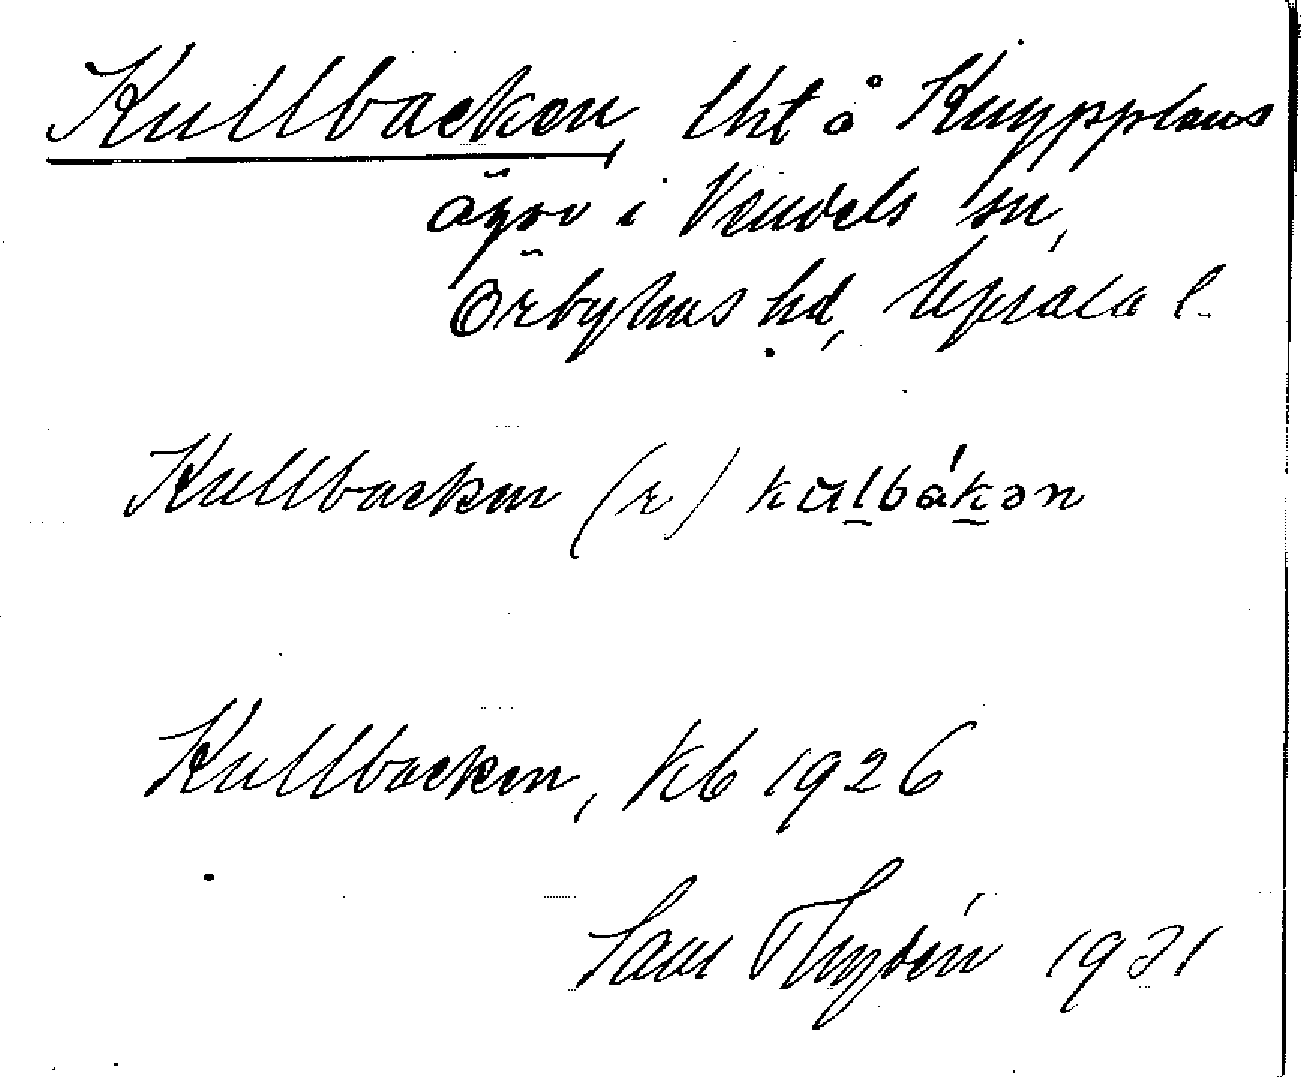 Kullbacken, lht å Knypplans
ägor i Vendels sn,
Örbyhus hd, Upsala l.
Kullbacken (r) kulbákən
Kullbacken, Kb 1926
Sam Thydén 1931